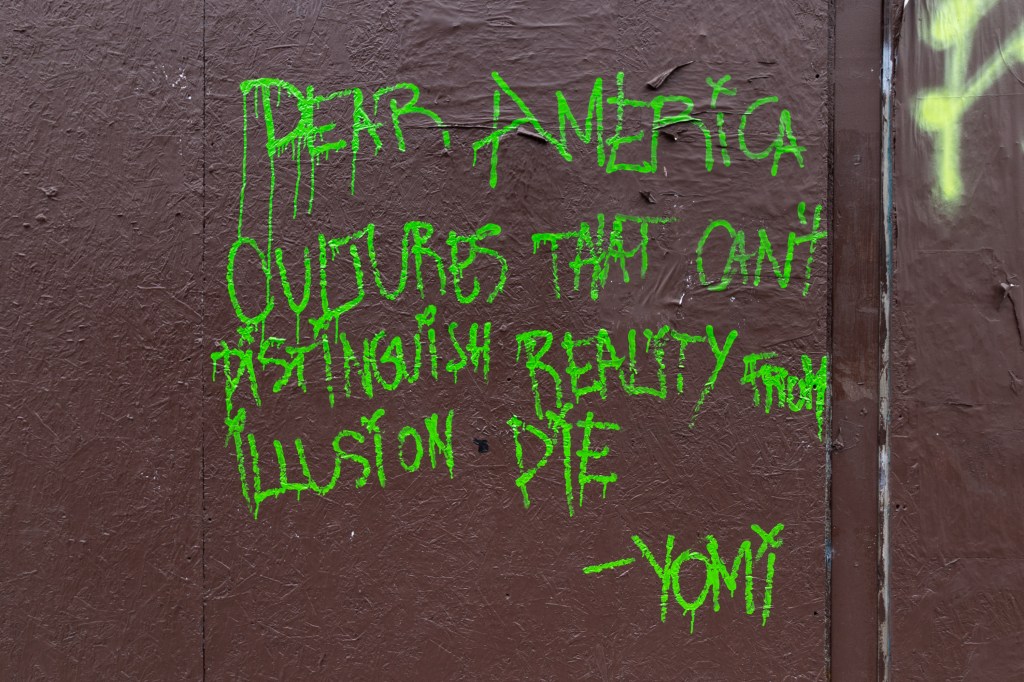 DEAR AMERICA
CULTURES THAT CAN'T
DISTINGUISH REALITY FROM
ILLUSION DIE
-YOMI